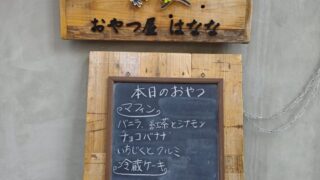 おやつ屋 はなな
本日のおやつ
マフィン
バニラ、紅茶とシナモン
チョコバナナ
いちじくとクルミ
冷蔵ケーキ